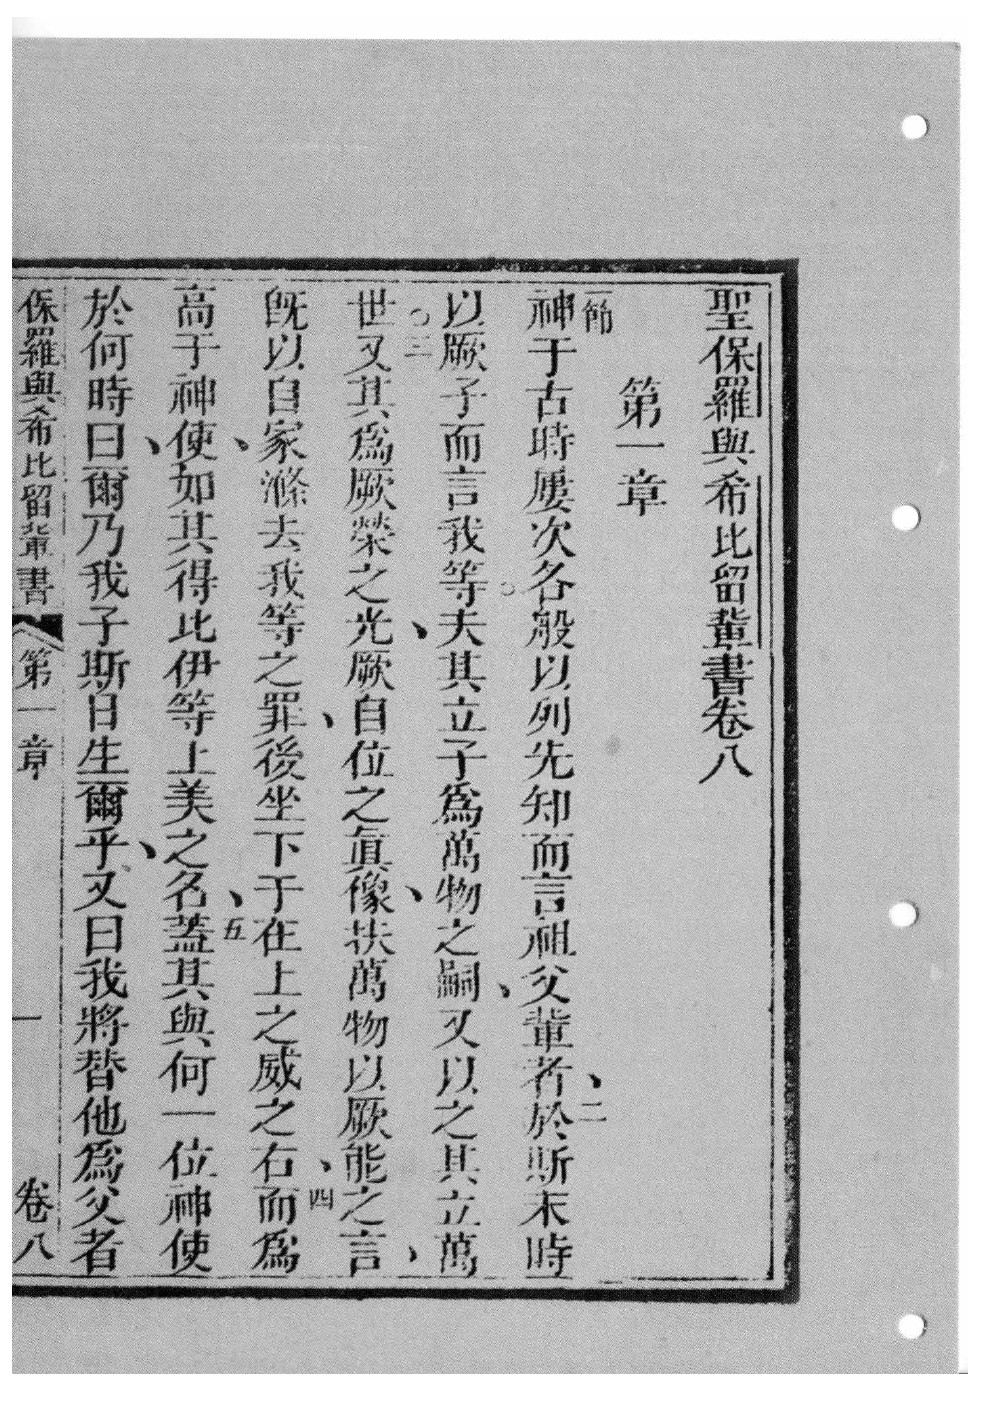 聖保羅與希比留輩書卷八
第一章
一節
神于古時屢次各般以列先知而言祖父輩者、於斯末時
二
以厥子而言我等。夫其立子爲萬物之嗣、又以之其立萬
世。又其爲厥榮之光、厥自位之眞像、扶萬物以厥能之言、
三
旣以自家滌去我等之罪、後坐下于在上之威之右、而爲
四
高于神使、如其得比伊等上美之名、蓋其與何一位神使
五
於何時曰、爾乃我子、斯日生爾乎、又曰我將替他爲父者
保羅與希比留輩書 第一章 一 卷八